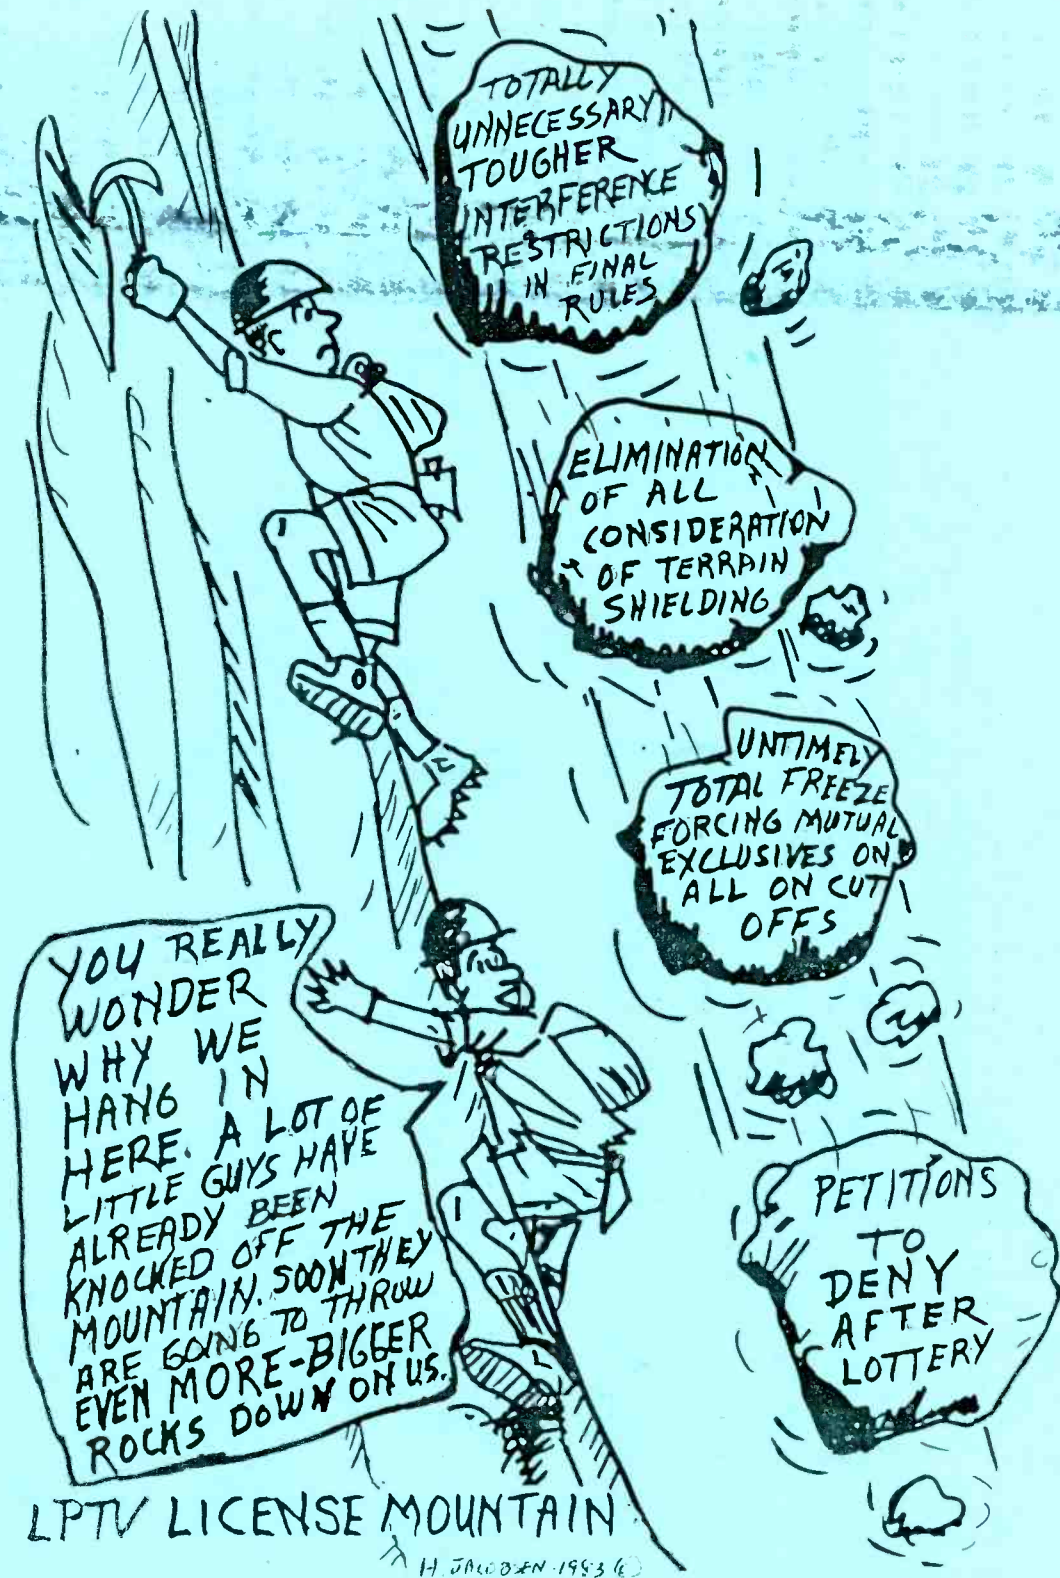 TOTALLY
UNNECESSARY
TOUGHER
INTERFERENCE
RESTRICTIONS
IN FINAL
RULES
ELIMINATION
OF ALL
CONSIDERATION
OF TERRAIN
SHIELDING
UNTIMELY
TOTAL FREEZE
FORCING MUTUAL
EXCLUSIVES ON
ALL ON CUT
OFFS
PETITIONS
TO
DENY
AFTER
LOTTERY
YOU REALLY
WONDER
WHY WE
HANG IN
HERE. A LOT OF
LITTLE GUYS HAVE
ALREADY BEEN
KNOCKED OFF THE
MOUNTAIN. SOON THEY
ARE GOING TO THROW
EVEN MORE-BIGGER
ROCKS DOWN ON US.
LPTV LICENSE MOUNTAIN
H. JACOBSEN 1983 ©